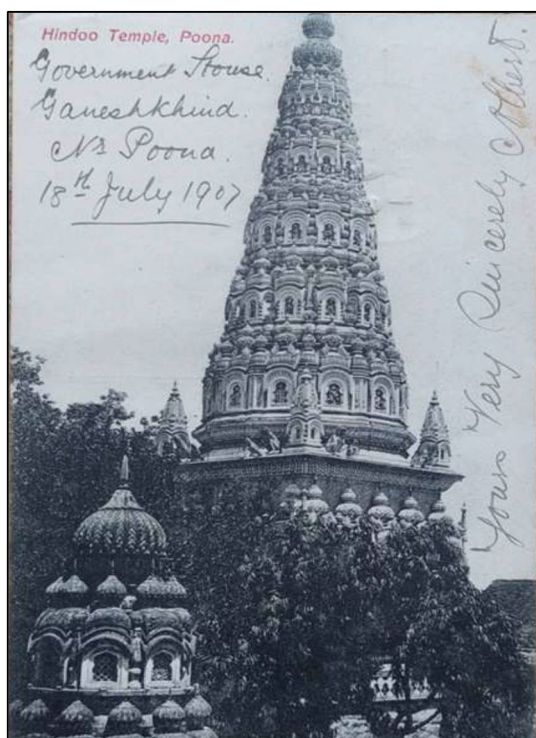 Hindoo Temple, Poona.
Government House.
Ganeshkhind.
Nr Poona.
18th July 1907
Yours Very Sincerely Albert.